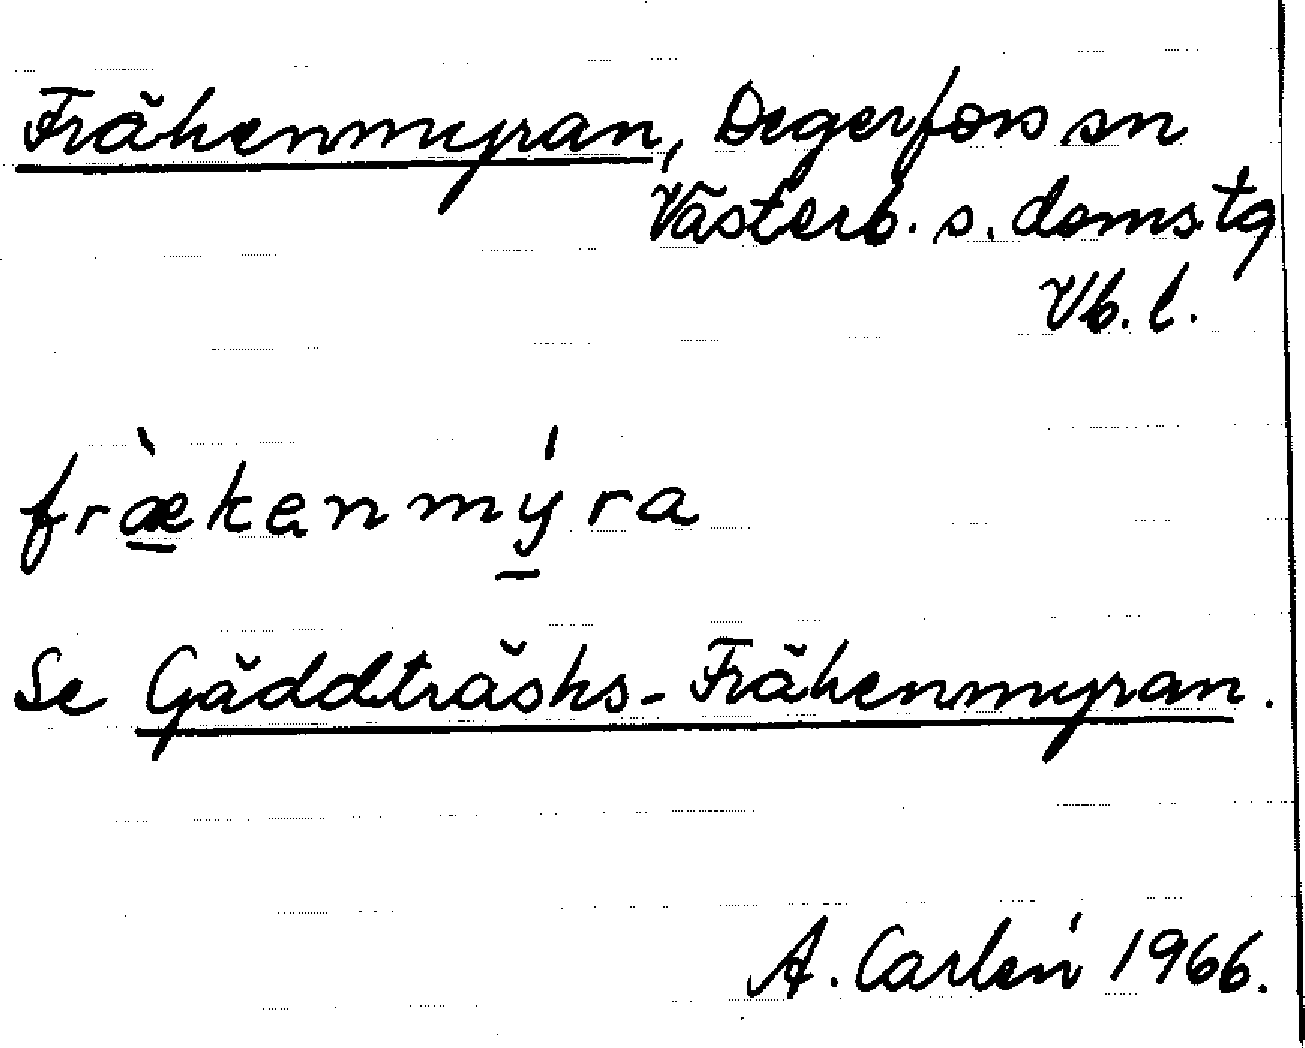 Fräkenmyran, Degerfors sn
Västerb. s. doms.tg
Vb. l.
fræ̀kenmýra
Se Gäddträsks-Fräkenmyran.
A. Carlén 1966.